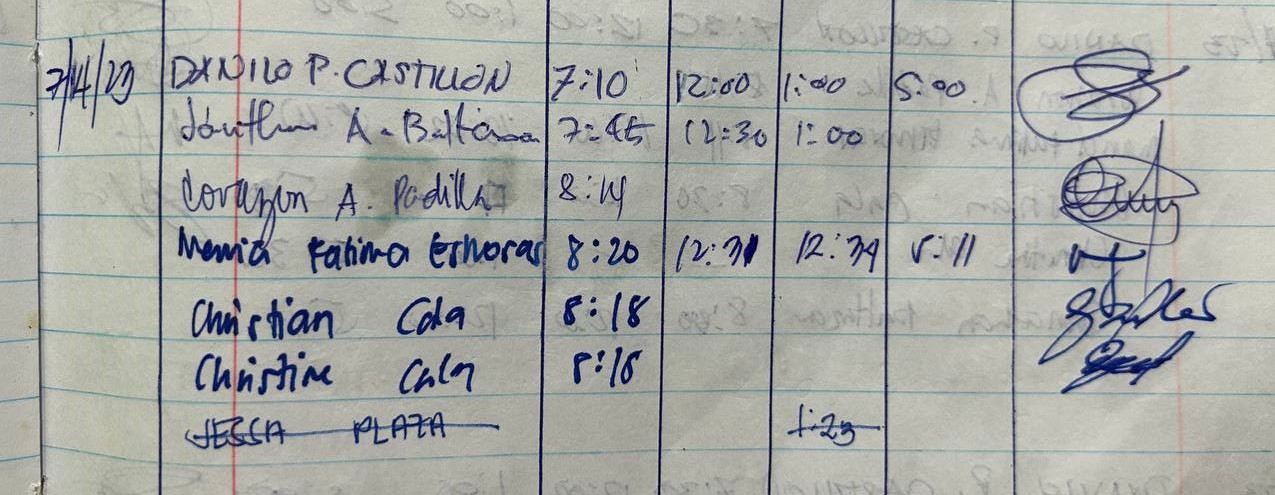 7/4/23 DANILO P. CASTILLON 7:10 12:00 1:00 5:00
A. Baltazar 7:45 12:30 1:00
Corazon A. Padilla 8:14
Maria Fatima Eshoras 8:20 12:31 12:34 5:11
Christian Cala 8:18
Christine Cala 8:18
JESSA PLAZA 1:23